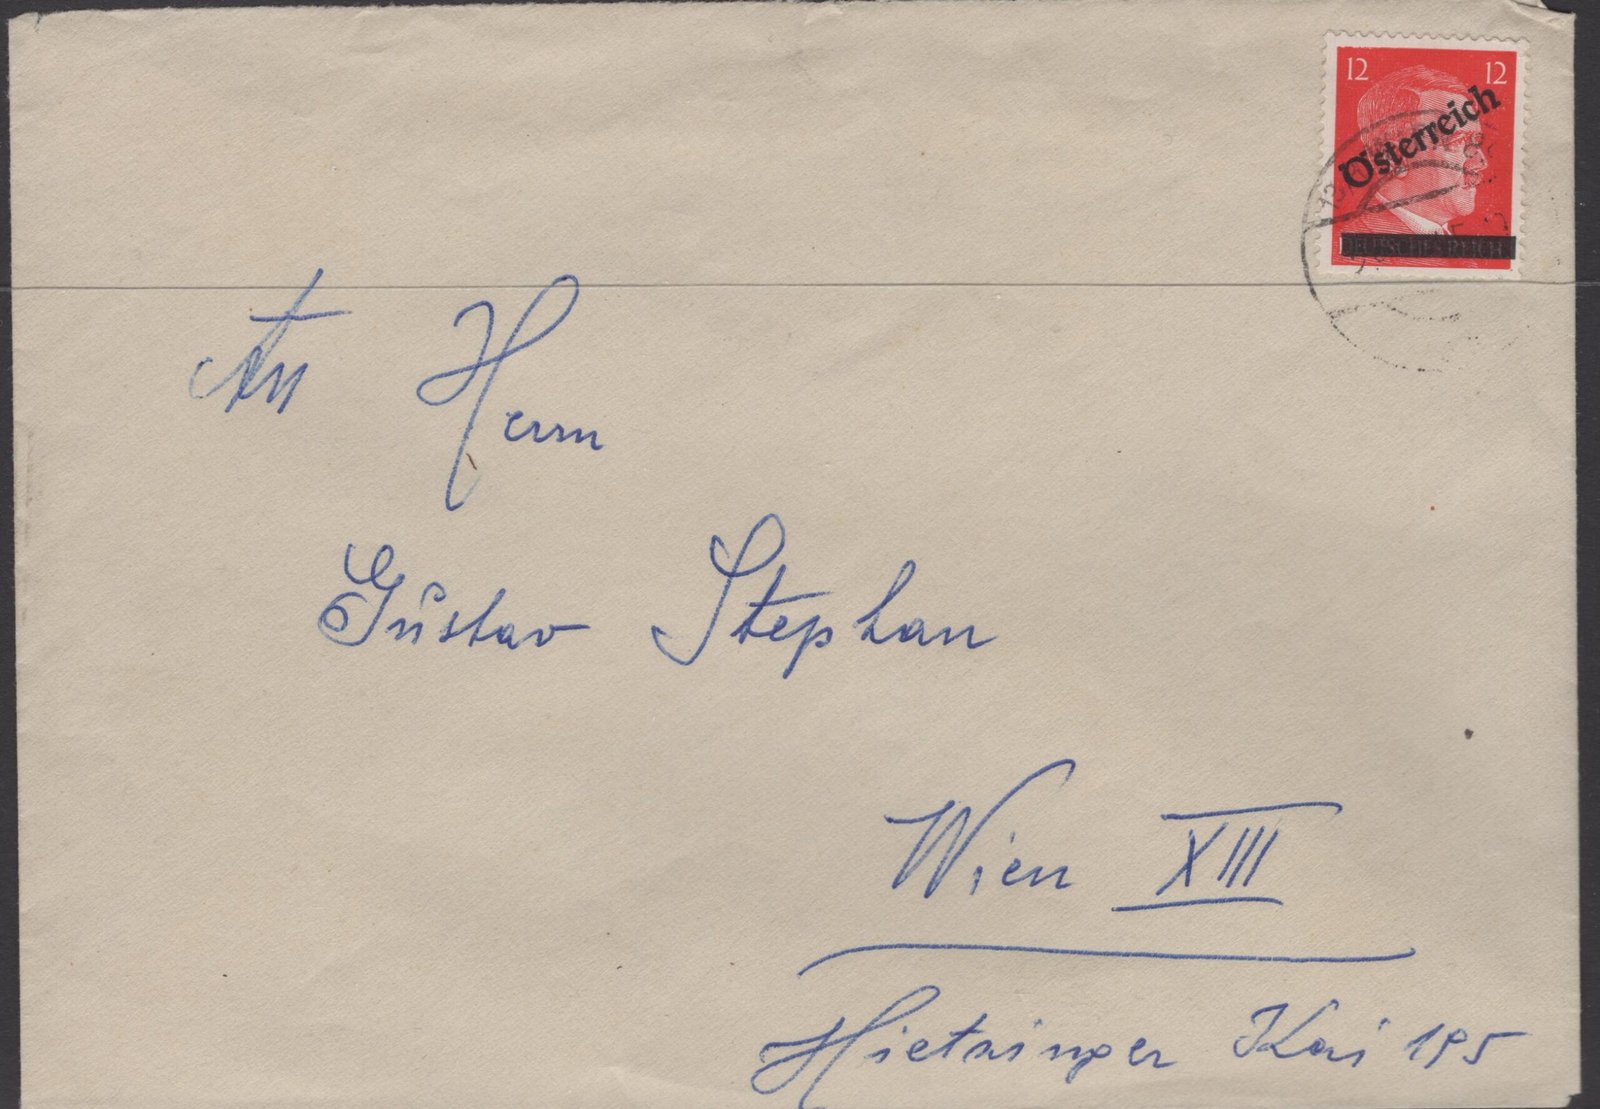 12 12
Österreich
DEUTSCHES REICH
An Herrn
Gustav Stephan
Wien XIII
Hietzinger Kai 195